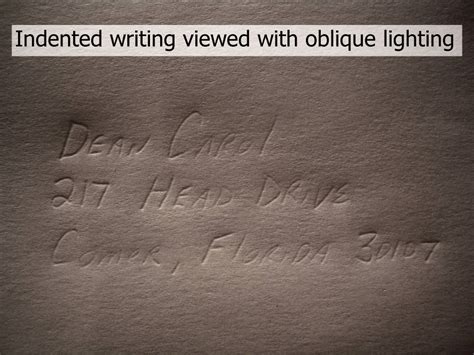 Indented writing viewed with oblique lighting
Dean Carol
217 Head Drive
Comer, Florida 30107